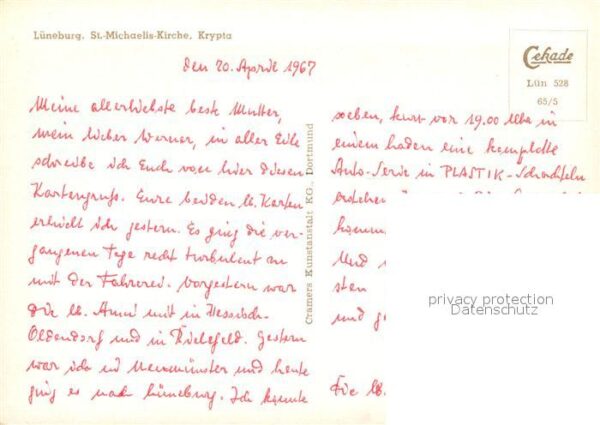 Lüneburg, St.-Michaelis-Kirche, Krypta
Cekade
Lün 528
65/5
den 20. April 1967
Meine allerliebste beste Mutter,
mein lieber Werner, in aller Eile
schreibe ich Euch von hier diesen
Kartengruß. Eure beiden lb. Karten
erhielt ich gestern. Es ging die ver-
gangenen Tage recht turbulent zu
mit der Fahrerei. Vorgestern war
die lb. Anni mit in Hessisch-
Oldendorf und in Bielefeld. Gestern
war ich in Neumünster und heute
ging es nach Lüneburg. Ich konnte
Cramers Kunstanstalt KG., Dortmund
soeben, kurz vor 19.00 Uhr in
einem Laden eine komplette
Auto-Serie in PLASTIK-Schachteln
Und
sten
und
Die lb.
privacy protection
Datenschutz